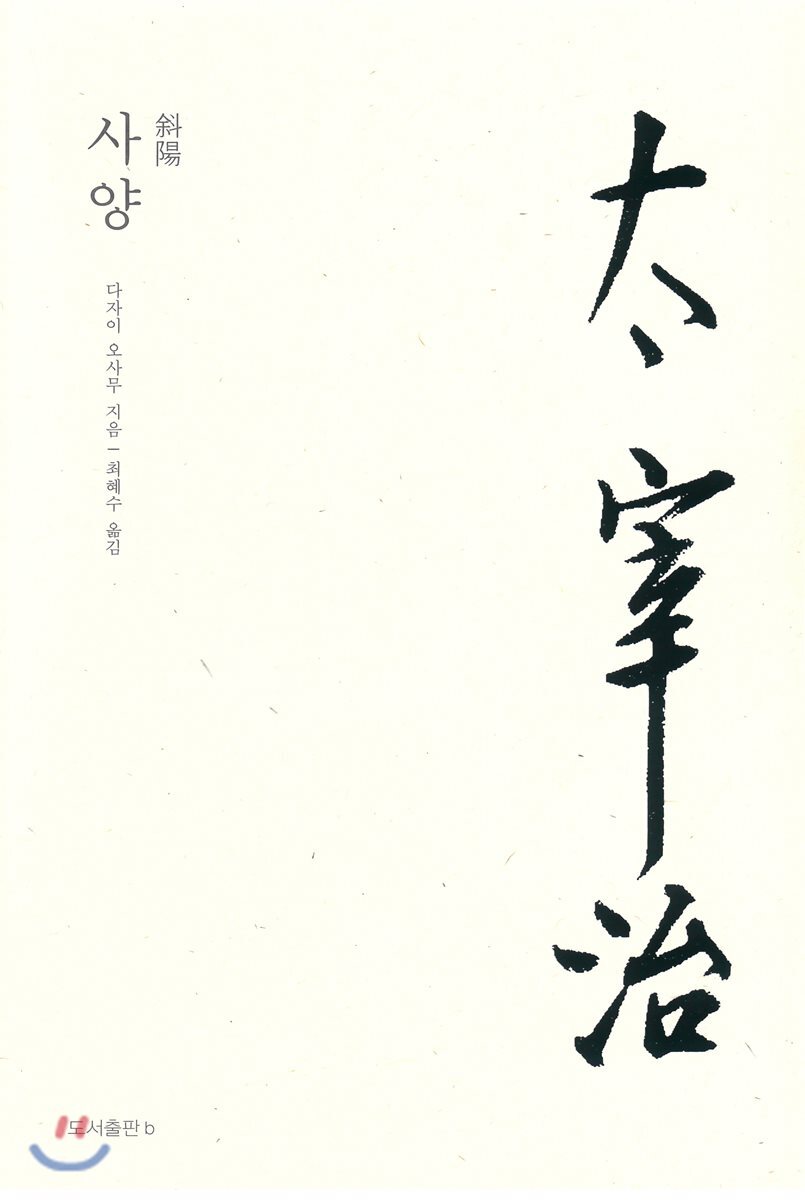 太宰治
斜陽
사양
다자이 오사무 지음 – 최혜수 옮김
도서출판 b